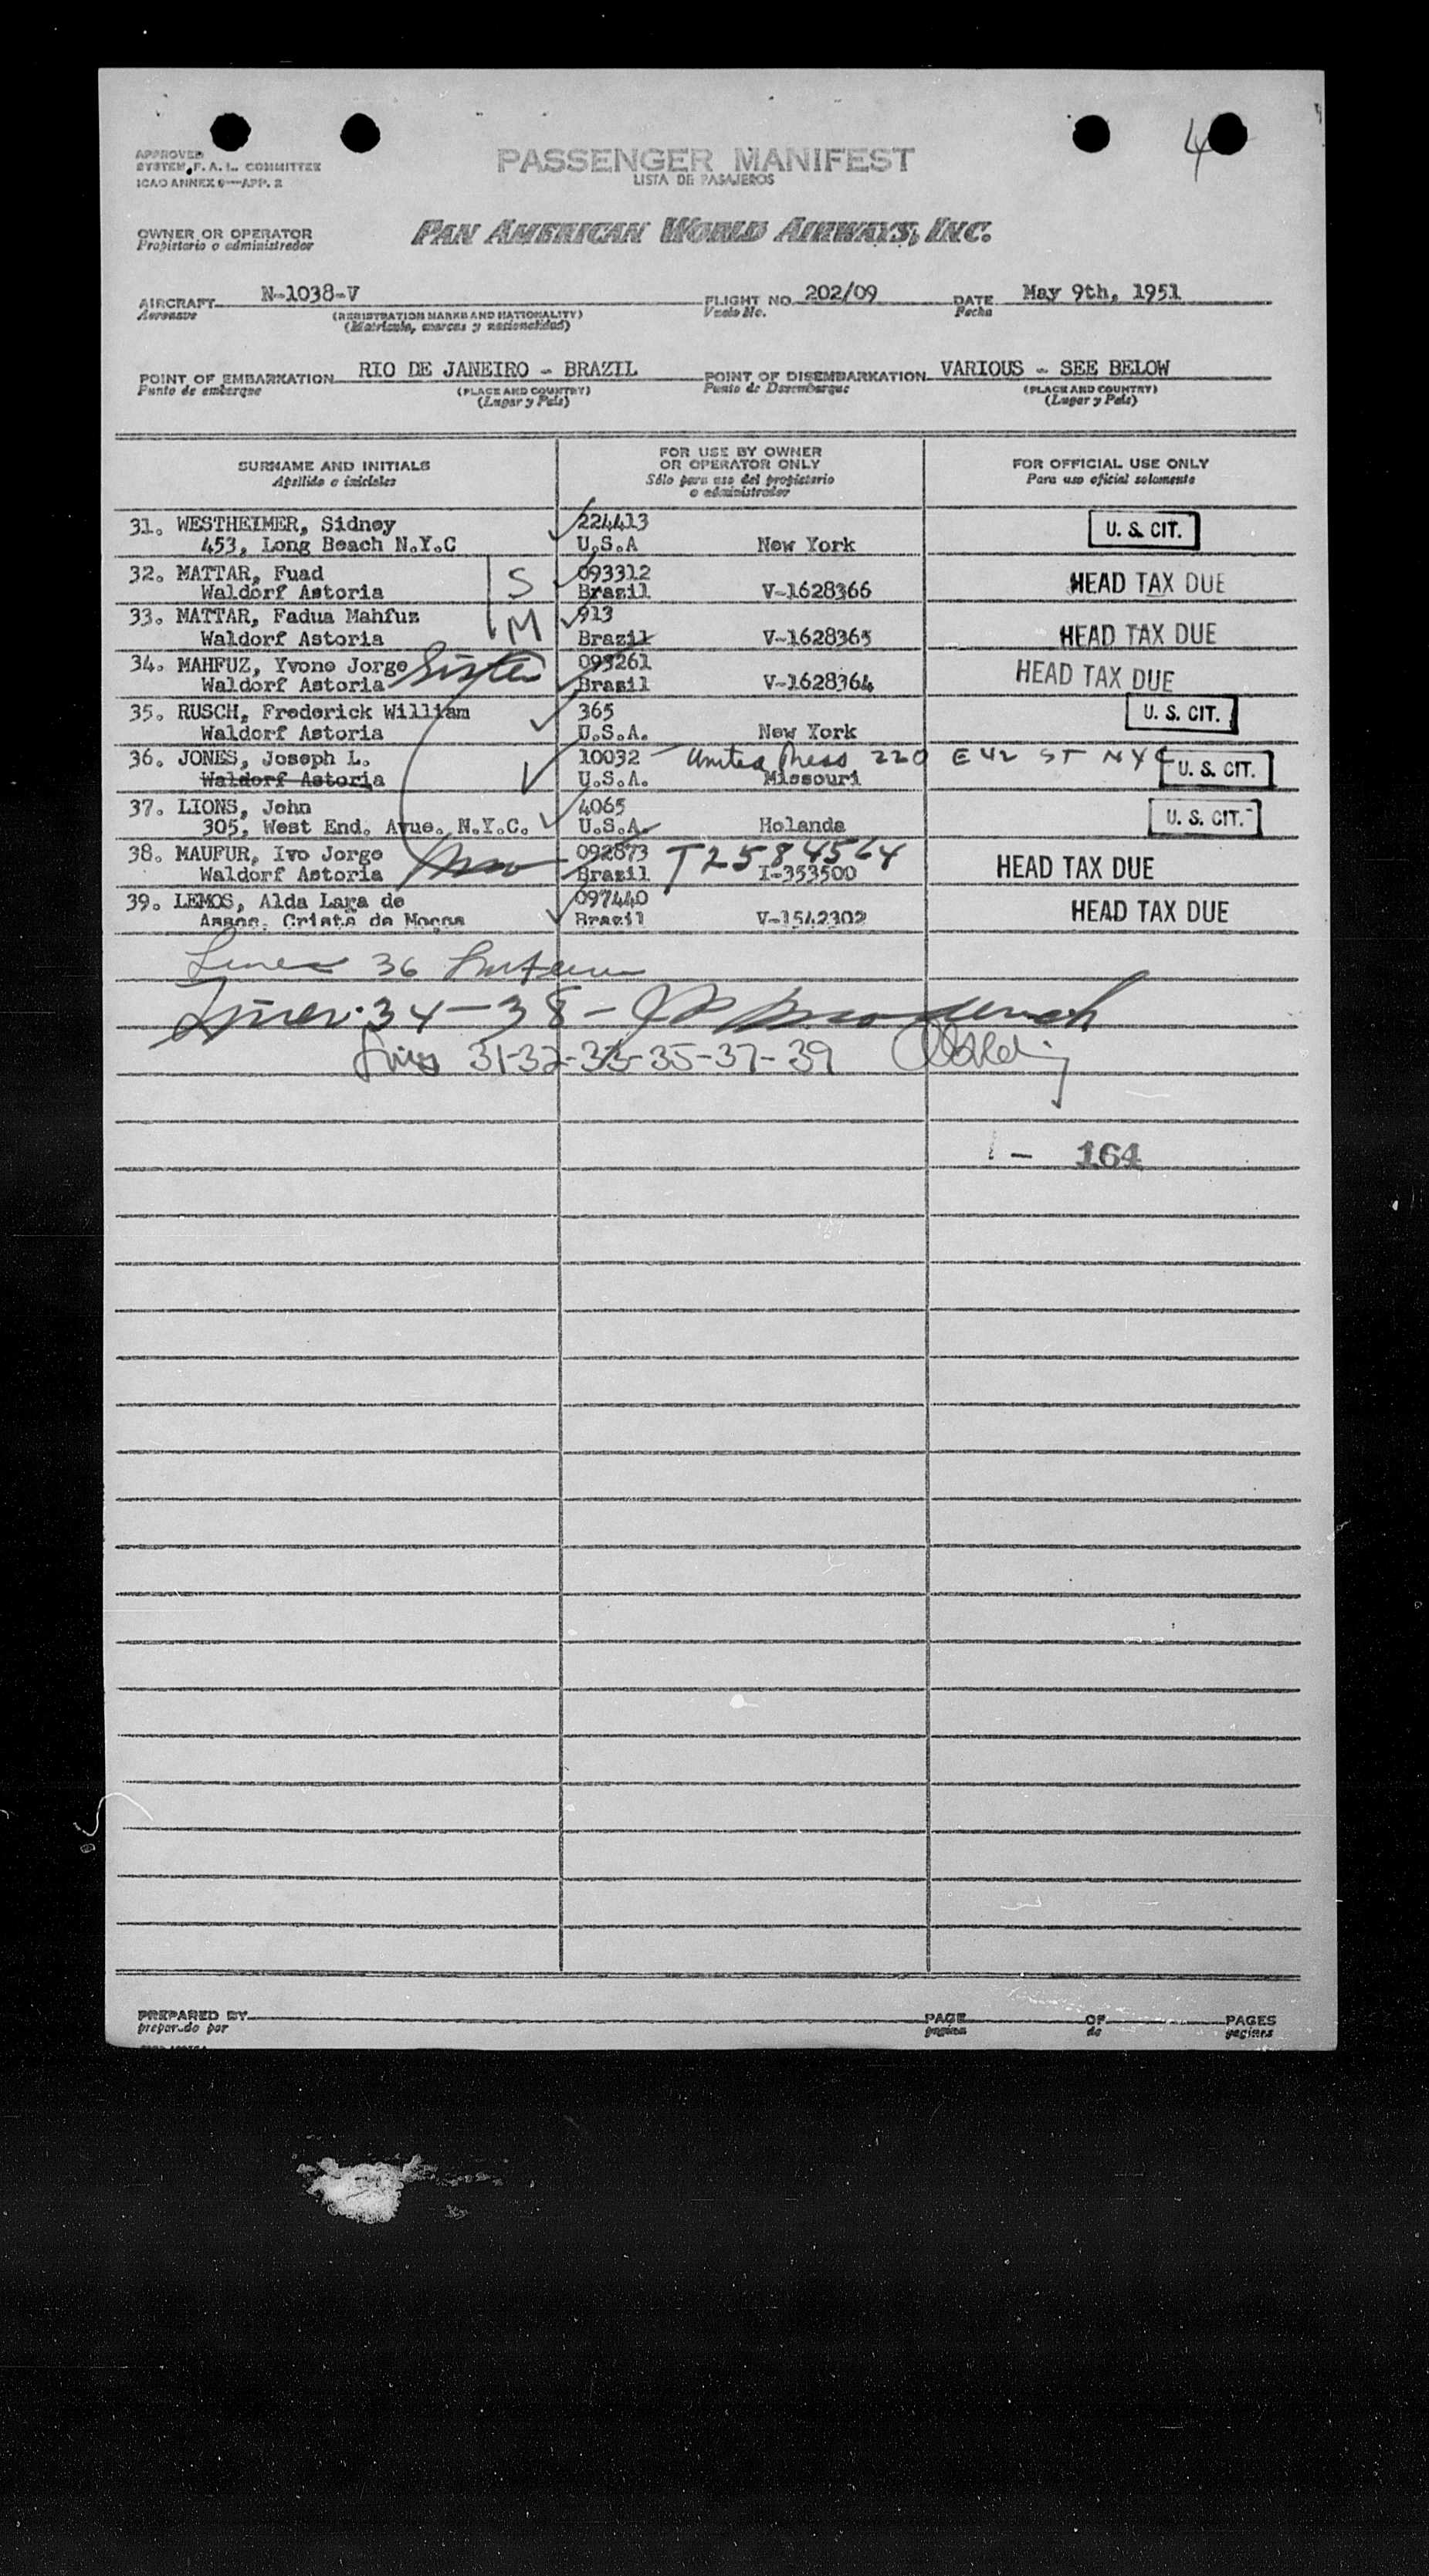 4
APPROVED
SYSTEM, F. A. L. COMMITTEE
ICAO ANNEX 9—APP. 2
PASSENGER MANIFEST
LISTA DE PASAJEROS
OWNER OR OPERATOR
Propietario o administrador
PAN AMERICAN WORLD AIRWAYS, INC.
AIRCRAFT N-1038-V FLIGHT NO. 202/09 DATE May 9th, 1951
Aeronave (REGISTRATION MARKS AND NATIONALITY) Vuelo No. Fecha
(Matricula, marcas y nacionalidad)
POINT OF EMBARKATION RIO DE JANEIRO - BRAZIL POINT OF DISEMBARKATION VARIOUS - SEE BELOW
Punto de embarque (PLACE AND COUNTRY) Punto de Desembarque (PLACE AND COUNTRY)
(Lugar y Pais) (Lugar y Pais)
SURNAME AND INITIALS FOR USE BY OWNER OR OPERATOR ONLY FOR OFFICIAL USE ONLY
Apellido e iniciales Sólo para uso del propietario o administrador Para uso oficial solamente
31. WESTHEIMER, Sidney 224413 U. S. CIT.
453, Long Beach N.Y.C U.S.A New York
32. MATTAR, Fuad S 093312 HEAD TAX DUE
Waldorf Astoria Brazil V-1628366
33. MATTAR, Fadua Mahfuz M 913 HEAD TAX DUE
Waldorf Astoria Brazil V-1628365
34. MAHFUZ, Yvone Jorge Sister 093261 HEAD TAX DUE
Waldorf Astoria Brazil V-1628364
35. RUSCH, Frederick William 365 U. S. CIT.
Waldorf Astoria U.S.A. New York
36. JONES, Joseph L. 10032 United Press 220 E 42 ST NYC U. S. CIT.
Waldorf Astoria U.S.A. Missouri
37. LIONS, John 4065 U. S. CIT.
305, West End. Avue. N.Y.C. U.S.A. Holanda
38. MAUFUR, Ivo Jorge 092873 T2584564 HEAD TAX DUE
Waldorf Astoria Brazil I-353500
39. LEMOS, Alda Lara de 097440 HEAD TAX DUE
Assoc. Cristã de Moços Brazil V-1542302
Lines 36
Lines 34-38-
Lines 31-32-33-35-37-39
- 164
PREPARED BY PAGE OF PAGES
preparado por pagina de pagines